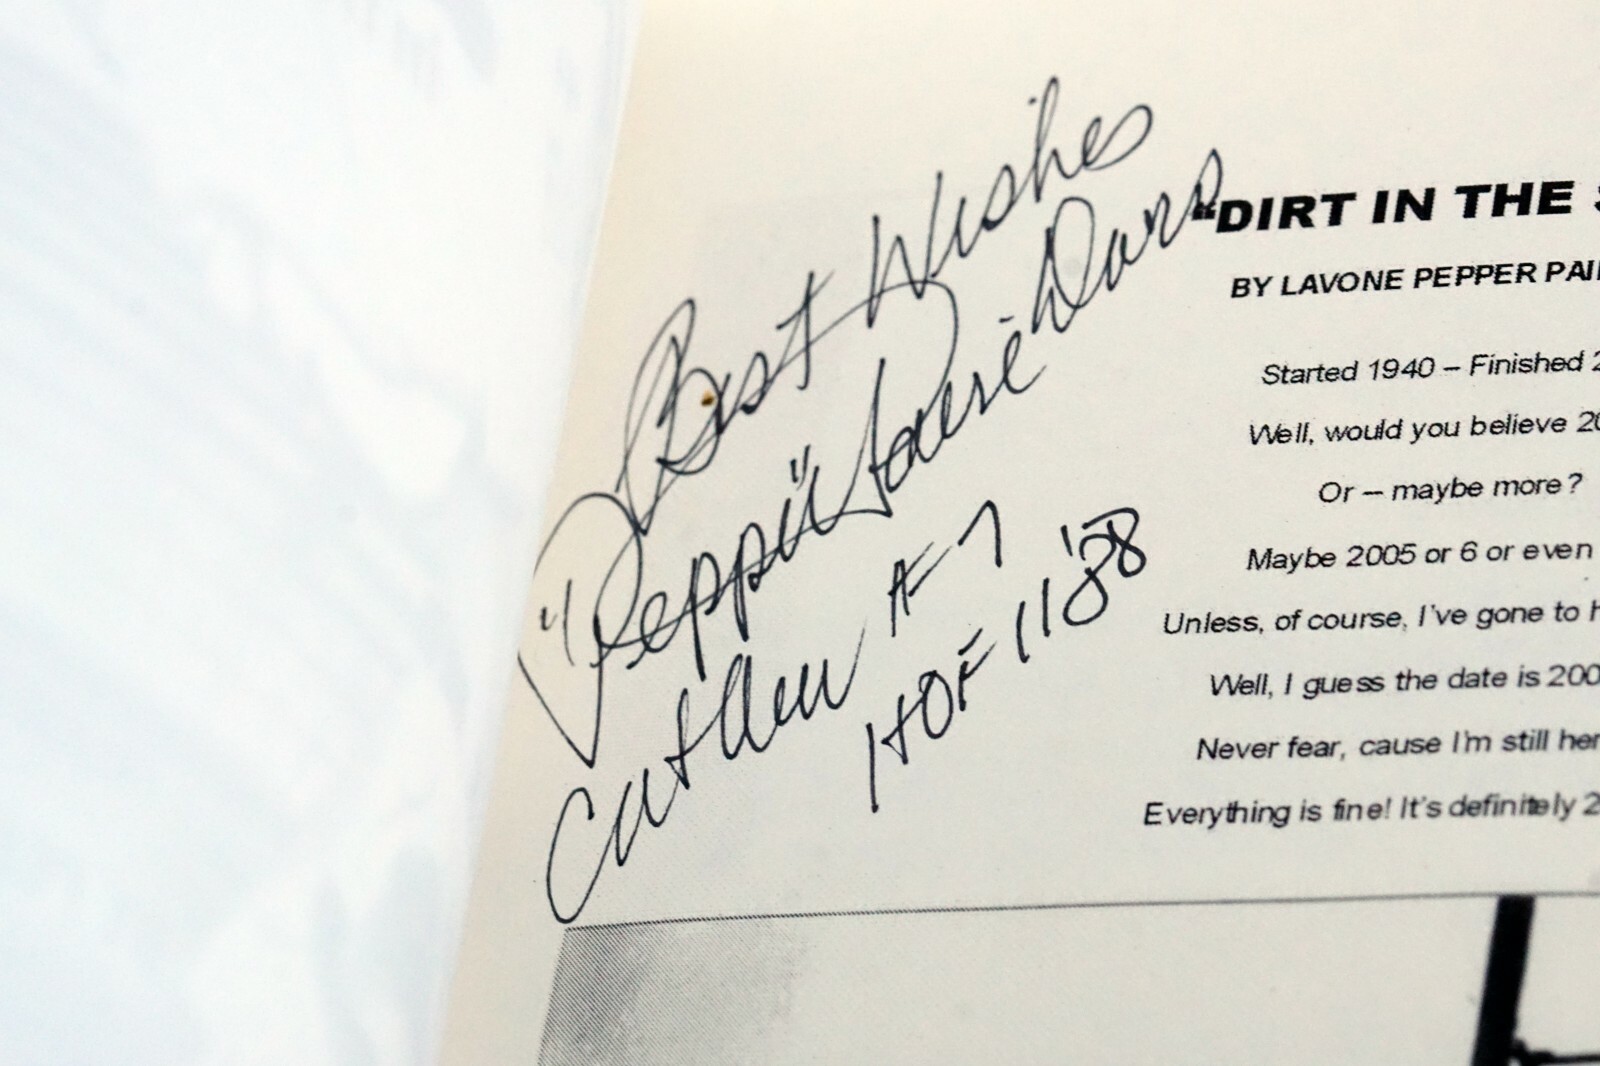 Best Wishes
"Peppi" Paire Davis
Catcher A-7
HOF 11 '88
"DIRT IN THE
BY LAVONE PEPPER PAI
Started 1940 – Finished 2
Well, would you believe 20
Or – maybe more?
Maybe 2005 or 6 or even
Unless, of course, I've gone to h
Well, I guess the date is 200
Never fear, cause I'm still her
Everything is fine! It's definitely 2